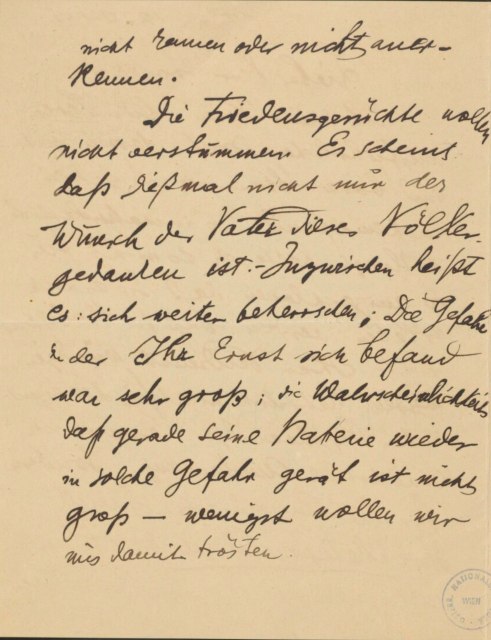 nicht kennen oder nicht aner-
kennen.
Die Friedensgerüchte wollen
nicht verstummen. Es scheint
daß dießmal nicht nur der
Wunsch der Vater dieses Völker-
gedanken ist. - Inzwischen heißt
es: sich weiter beherrschen; Die Gefahr
in der Ihr Ernst sich befand
war sehr groß; die Wahrscheinlichkeit
daß gerade seine Baterie wieder
in solche Gefahr gerät ist nicht
groß — wenigst wollen wir
uns damit trösten.
NATIONAL
WIEN